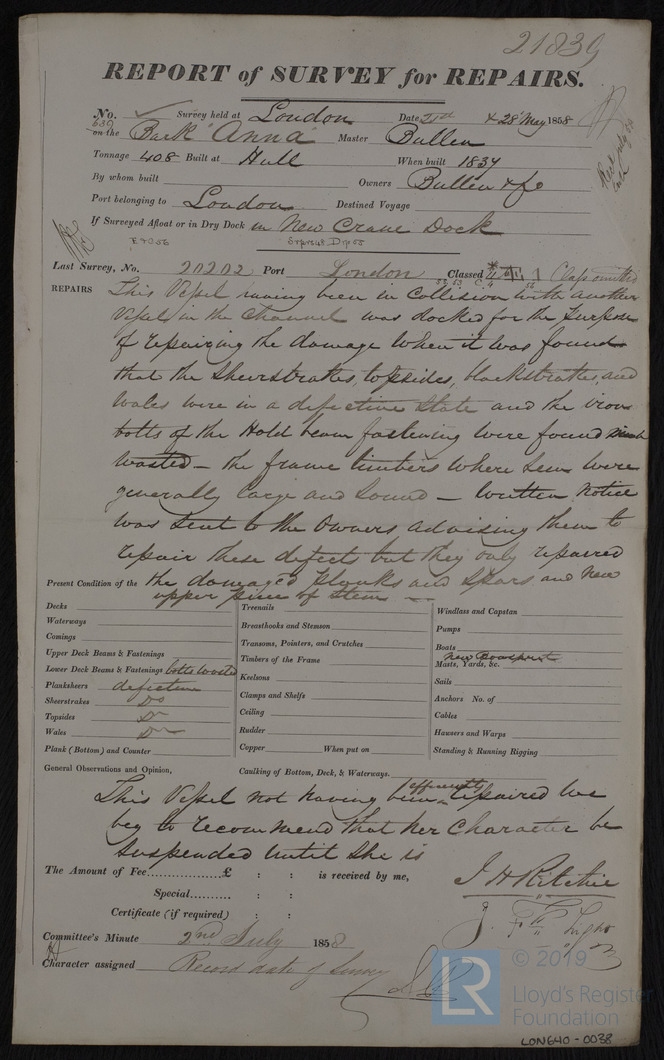 21839
REPORT of SURVEY for REPAIRS.
No. 639 Survey held at London Date 28 May 1858
on the Bark "Anna" Master Bullen
Tonnage 408 Built at Hull When built 1837
By whom built Owners Bullen & Co
Port belonging to London Destined Voyage
If Surveyed Afloat or in Dry Dock in New Crane Dock
Last Survey, No. 20202 Port London Classed Class omitted
REPAIRS This Vessel having been in Collision with another
Vessel in the Channel was docked for the purpose
of repairing the damage when it was found
that the Sheerstrakes, topsides, blackstrakes, and
Wales were in a defective State and the iron
bolts of the Hold beam fastening were found much
wasted – the frame timbers where seen were
generally large and Sound – written notice
was sent to the Owners advising them to
repair these defects but they only repaired
Present Condition of the the damaged planks and Spars and New
upper piece of Stem
Decks
Waterways
Comings
Upper Deck Beams & Fastenings
Lower Deck Beams & Fastenings bolts wasted
Planksheers defective
Sheerstrakes Do
Topsides Do
Wales Do
Plank (Bottom) and Counter
Treenails
Breasthooks and Stemson
Transoms, Pointers, and Crutches
Timbers of the Frame
Keelsons
Clamps and Shelfs
Ceiling
Rudder
Copper When put on
Windlass and Capstan
Pumps
Boats
New Bowsprit
Masts, Yards, &c.
Sails
Anchors No. of
Cables
Hawsers and Warps
Standing & Running Rigging
General Observations and Opinion, Caulking of Bottom, Deck, & Waterways.
efficiently
This Vessel not having been repaired we
beg to recommend that her Character be
suspended until she is
The Amount of Fee £ : : is received by me,
Special : :
Certificate (if required) : :
J H Ritchie
Committee's Minute 2nd July 1858
Character assigned Record date of Survey
LR
© 2019
Lloyd's Register
Foundation
LON640-0038